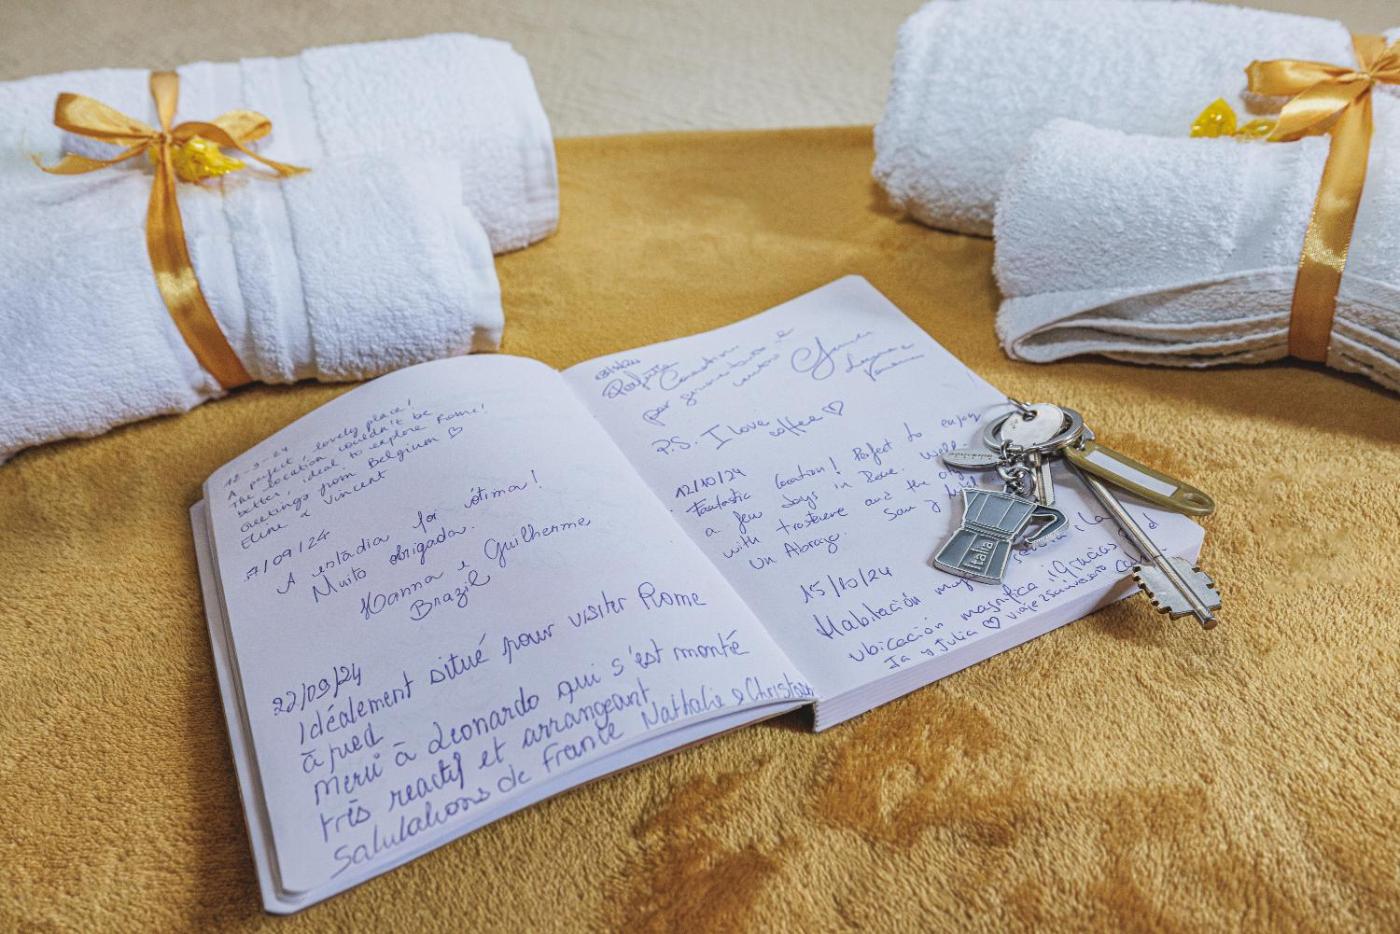 A perfect, lovely place!
The location couldn't be
better, ideal to explore Rome!
Greetings from Belgium ♡
Eline & Vincent
7/09/24
A estadia foi ótima!
Muito obrigada.
Hanna e Guilherme
Brazil
22/09/24
Idéalement situé pour visiter Rome
à pied
merci à Leonardo qui s'est montré
très reactif et arrangeant
Salutations de France Nathalie & Christian
per
P.S. I love
coffee ♡
12/10/24
Fantastic location! Perfect to enjoy
a few days in Rome. Well
with trastevere and the
Un Abrazo.
15/10/24
Habitación
ubicación magnifica ¡Gracias
Ia y Julia ♡ viaje 25
Italia